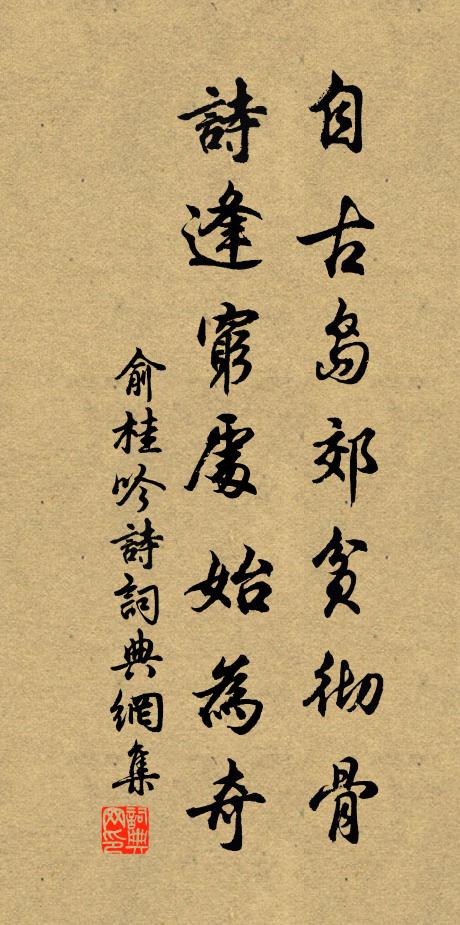 自古島郊貧徹骨
詩逢窮處始為奇
俞桂吟詩詞典網集
詞典網印